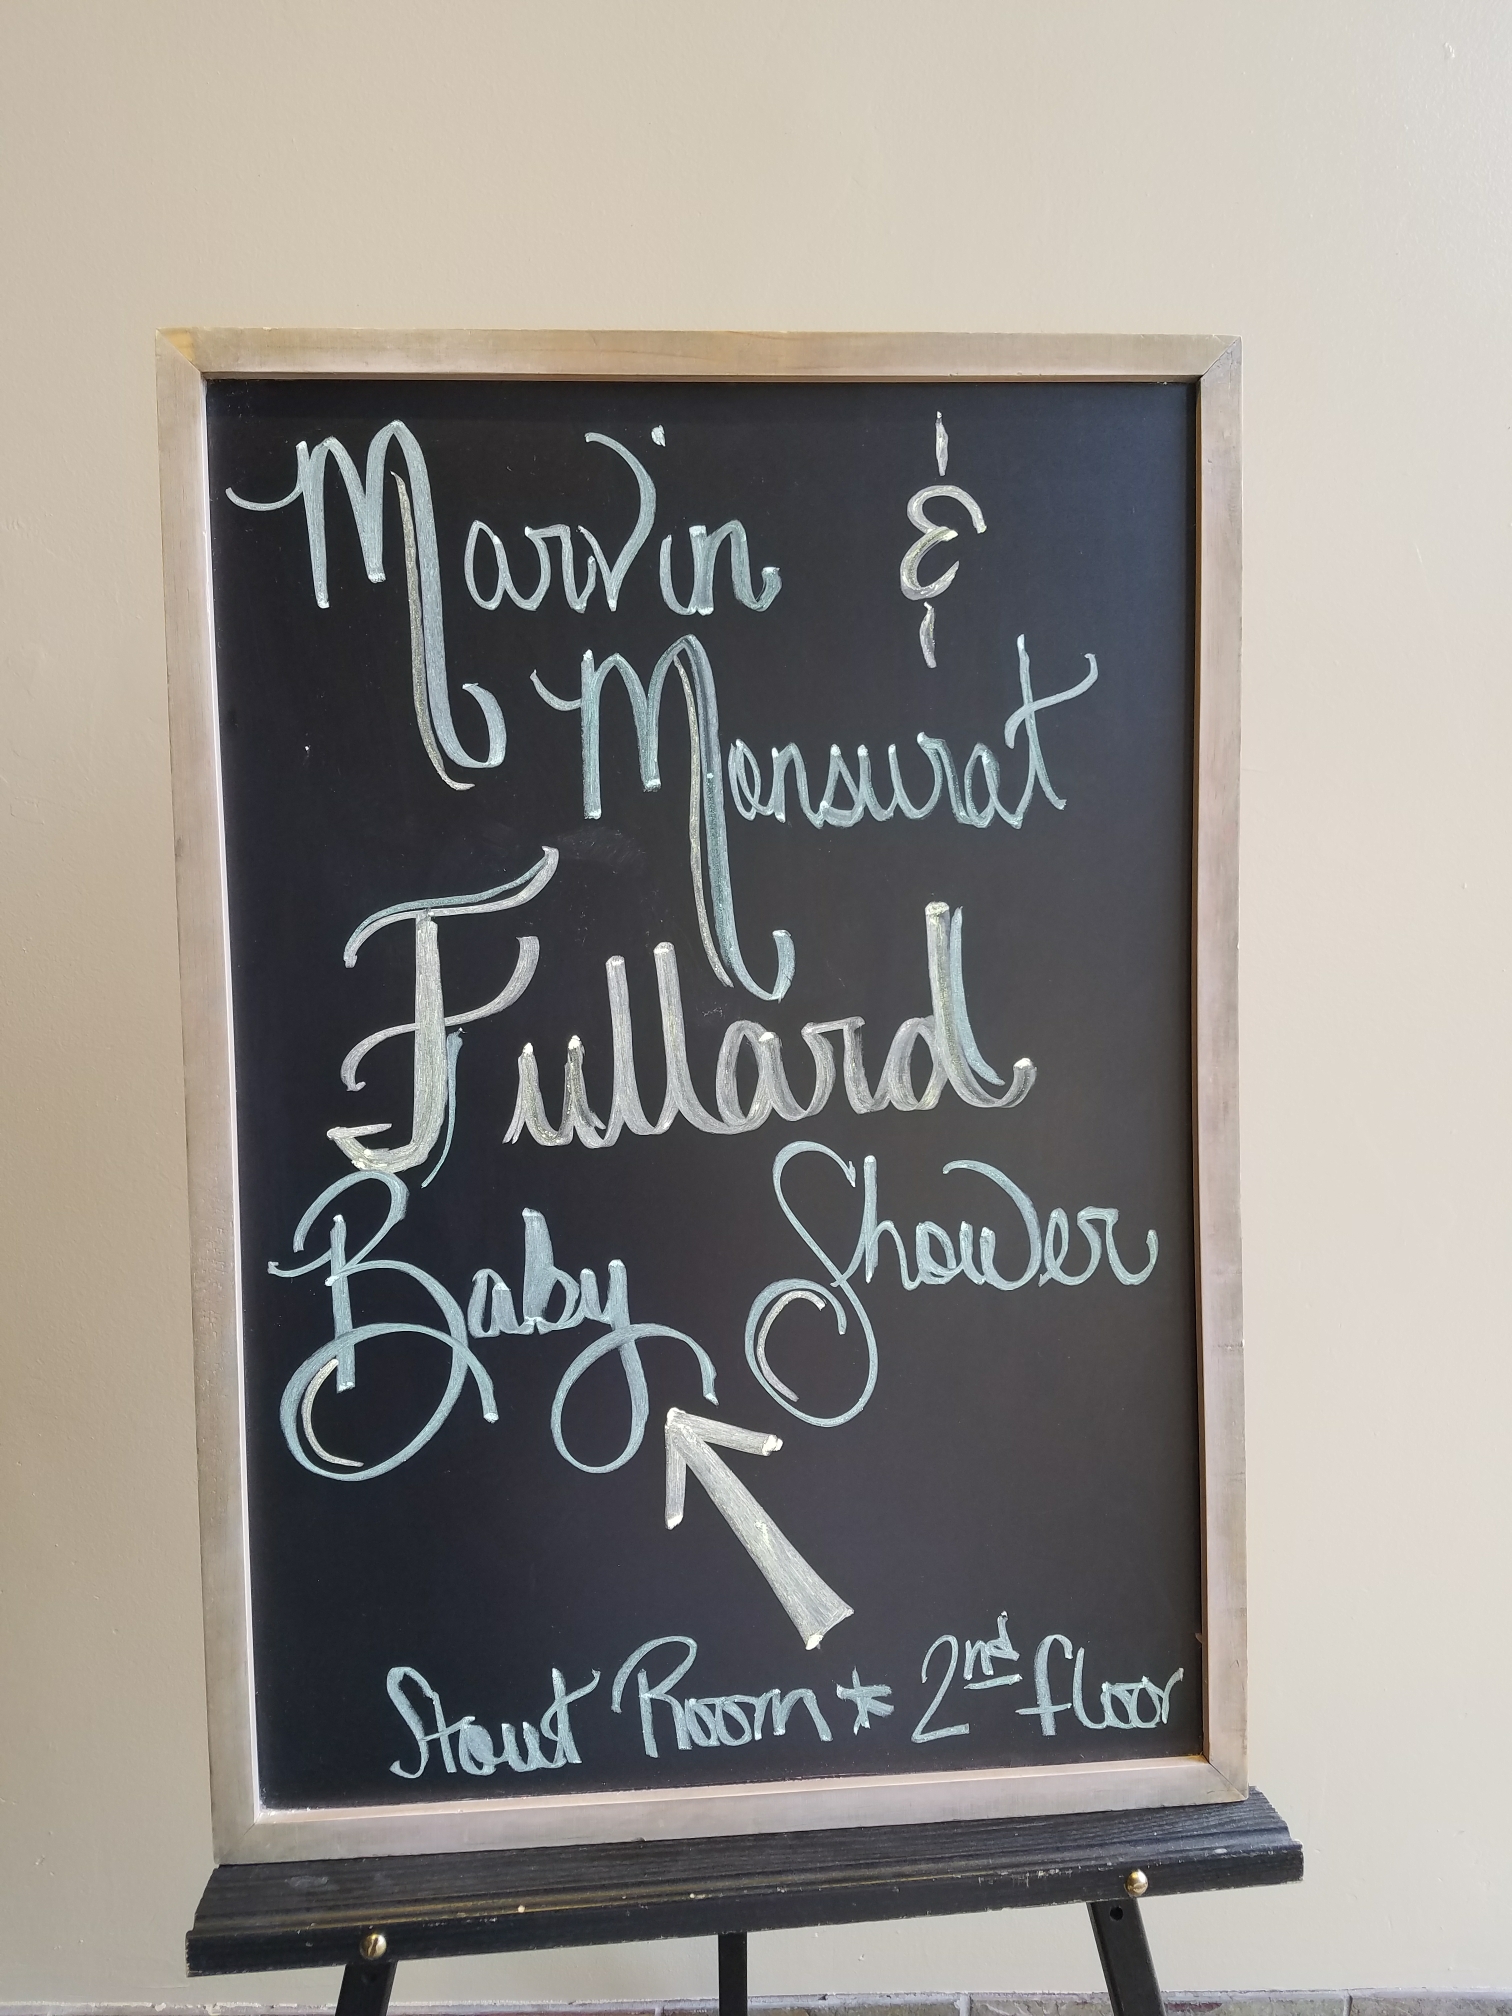 Marvin &
Monsurat
Fullard
Baby Shower
Stout Room * 2nd floor